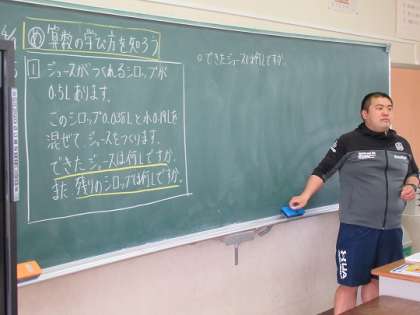 め 算数の学び方を知ろう
1 ジュースがつくれるシロップが
0.5Lあります。
このシロップ0.035Lと水0.19Lを
混ぜて、ジュースをつくります。
できたジュースは何Lですか。
また残りのシロップは何Lですか。
○できたジュースは何Lですか。